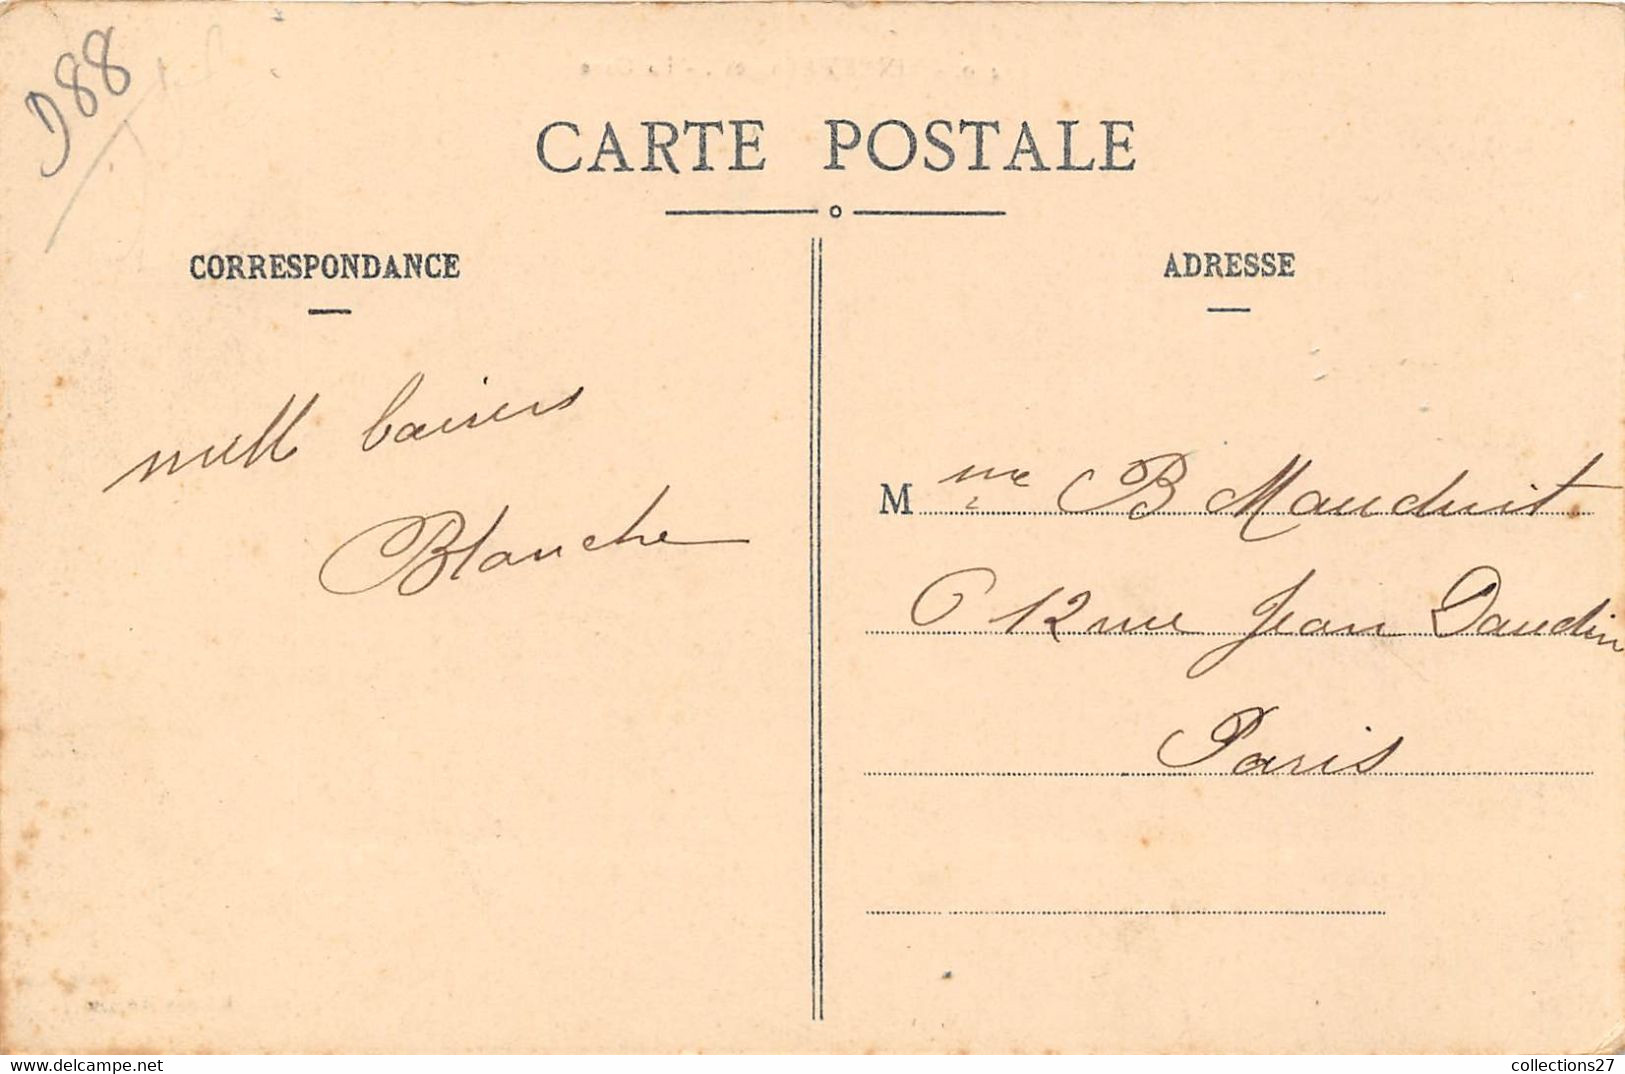 D88
CARTE POSTALE
CORRESPONDANCE
ADRESSE
mill baisers
Blanche
Mme B Mauduit.
6 12 rue Jean Daudin
Paris
www.delcampe.net
collections27